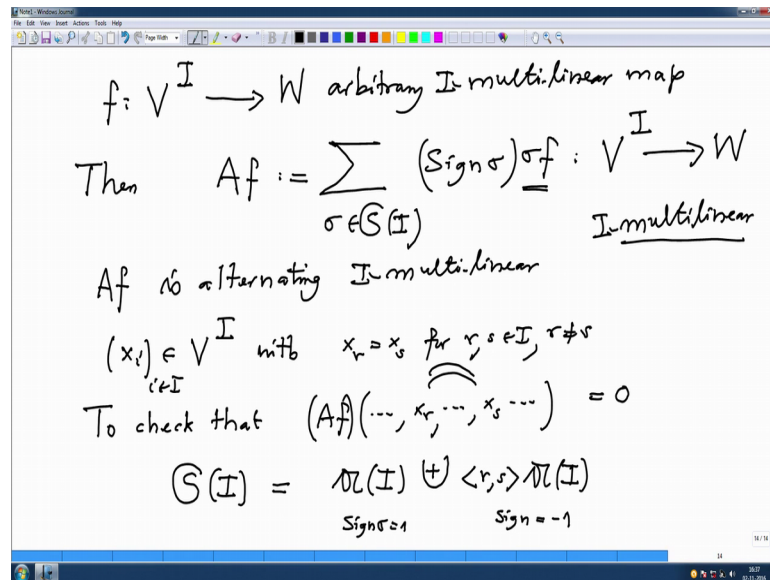 Note1 - Windows Journal
File Edit View Insert Actions Tools Help
Page Width
f: V^I → W arbitrary I-multi-linear map
Then Af := ∑_{σ∈𝔖(I)} (Sign σ) σf : V^I → W
I-multilinear
Af is alternating I-multi-linear
(x_i)_{i∈I} ∈ V^I with x_r = x_s for r, s ∈ I, r ≠ s
To check that (Af)(..., x_r, ..., x_s ...) = 0
𝔖(I) = 𝔄(I) ⊎ <r,s> 𝔄(I)
Sign σ = 1 Sign = -1
14 / 14
14
16:37
02-11-2016